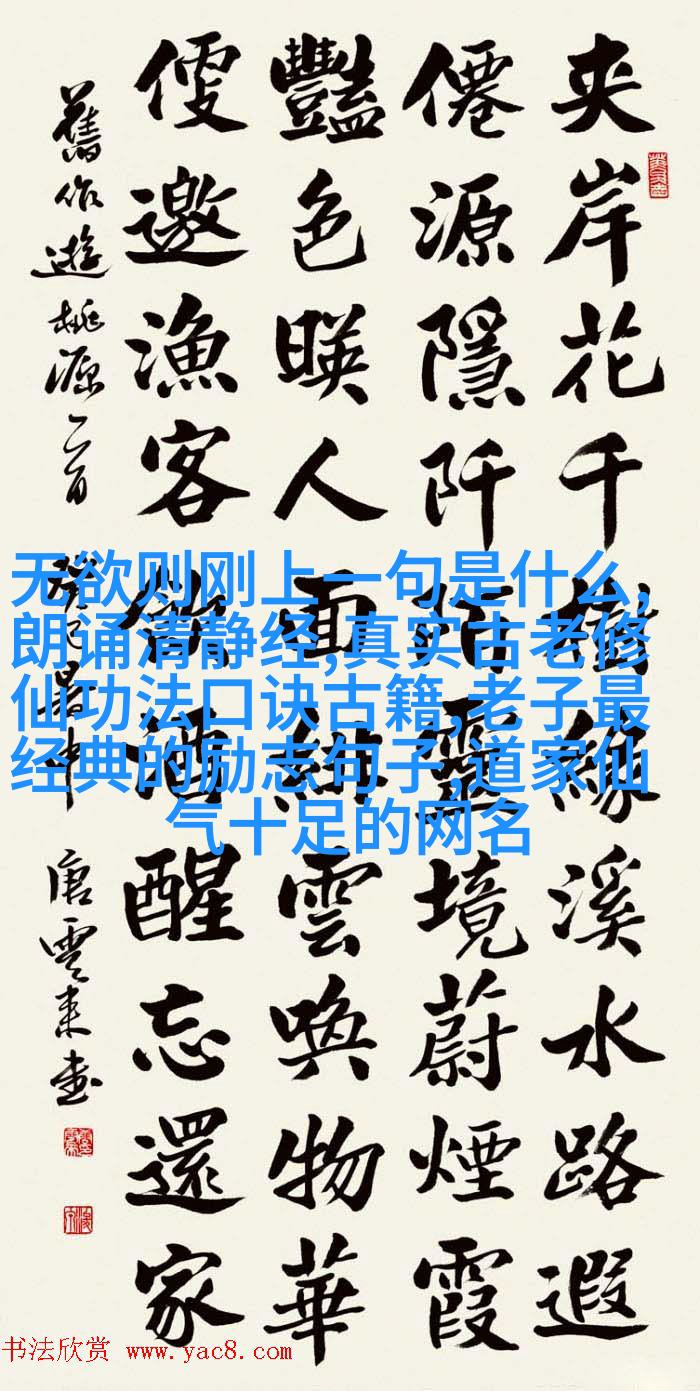 夹岸花千樹緣溪水路遐
僊源隱阡陌靈境蔚煙霞
豔色暎人面緋雲喚物華
便邀漁客飲酒醒忘還家
舊作遊桃源二首 癸巳暑中 唐雲来書
无欲则刚上一句是什么,
朗诵清静经,真实古老修
仙功法口诀古籍,老子最
经典的励志句子,道家仙
气十足的网名
书法欣赏 www.yac8.com